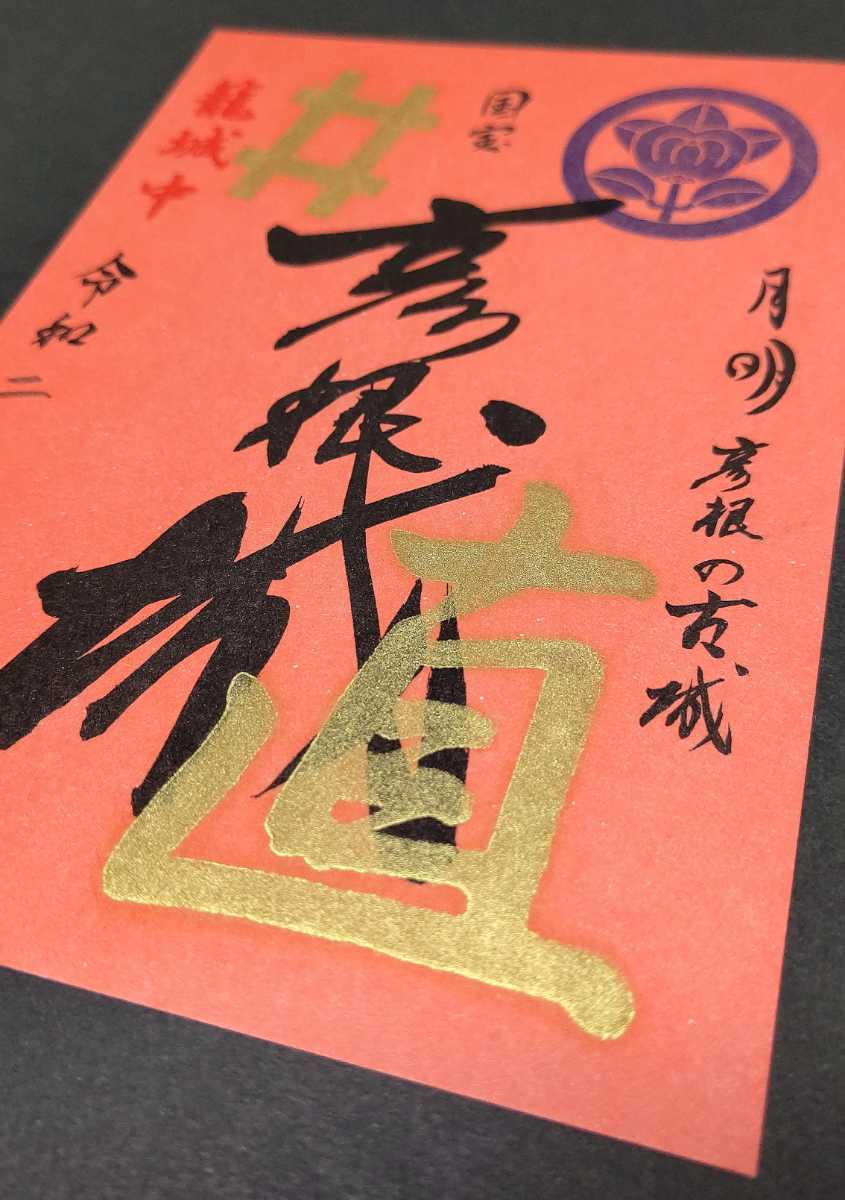 国宝
月明 彦根の古城
彦根城
直
籠城中
令和二